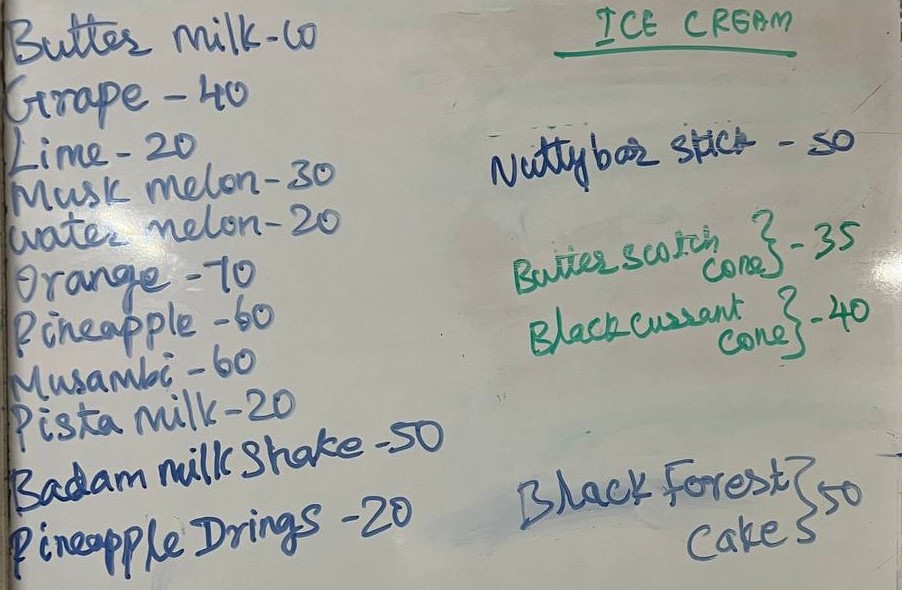 Butter milk-10
Grape - 40
Lime - 20
Musk melon-30
water melon-20
Orange -70
Pineapple -60
Musambi -60
Pista milk-20
Badam milk Shake -50
Pineapple Drings -20
ICE CREAM
Nuttybar stick - 50
Butter scotch
cone} - 35
Blackcurrant
cone} -40
Black Forest
Cake} 50